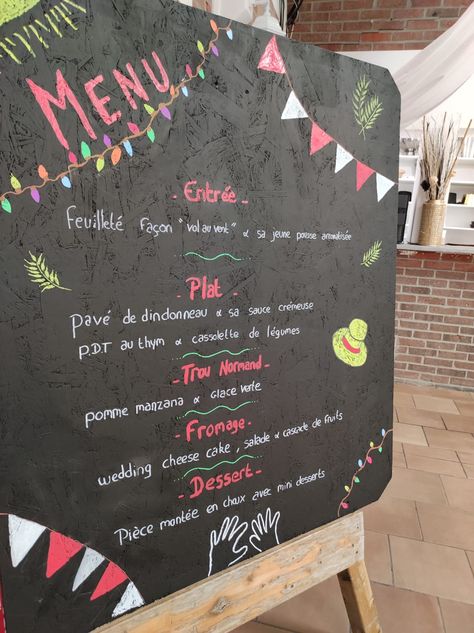 Menu
- Entrée -
Feuilleté façon "vol au vent" & sa jeune pousse aromatisée
- Plat -
pavé de dindonneau & sa sauce crémeuse
P.D.T au thym & cassolette de légumes
- Trou Normand -
pomme manzana & glace verte
- Fromage -
wedding cheese cake, salade & cascade de fruits
- Dessert -
Pièce montée en choux avec mini desserts